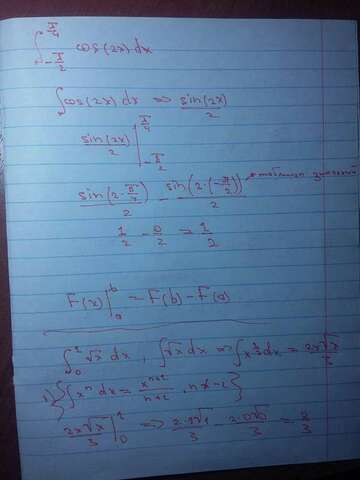 ∫_{-π/2}^{π/4} cos(2x) dx
∫cos(2x) dx => sin(2x)/2
sin(2x)/2 |_{-π/2}^{π/4}
sin(2·π/4)/2 - sin(2·(-π/2))/2
1/2 - 0/2 => 1/2
F(x)|_a^b = F(b) - F(a)
∫_0^1 √x dx, ∫√x dx => ∫x^{1/2} dx = 2x√x/3
1) {∫x^n dx = x^{n+1}/(n+1), n≠-1}
2x√x/3 |_0^1 => 2·1√1/3 - 2·0√0/3 = 2/3